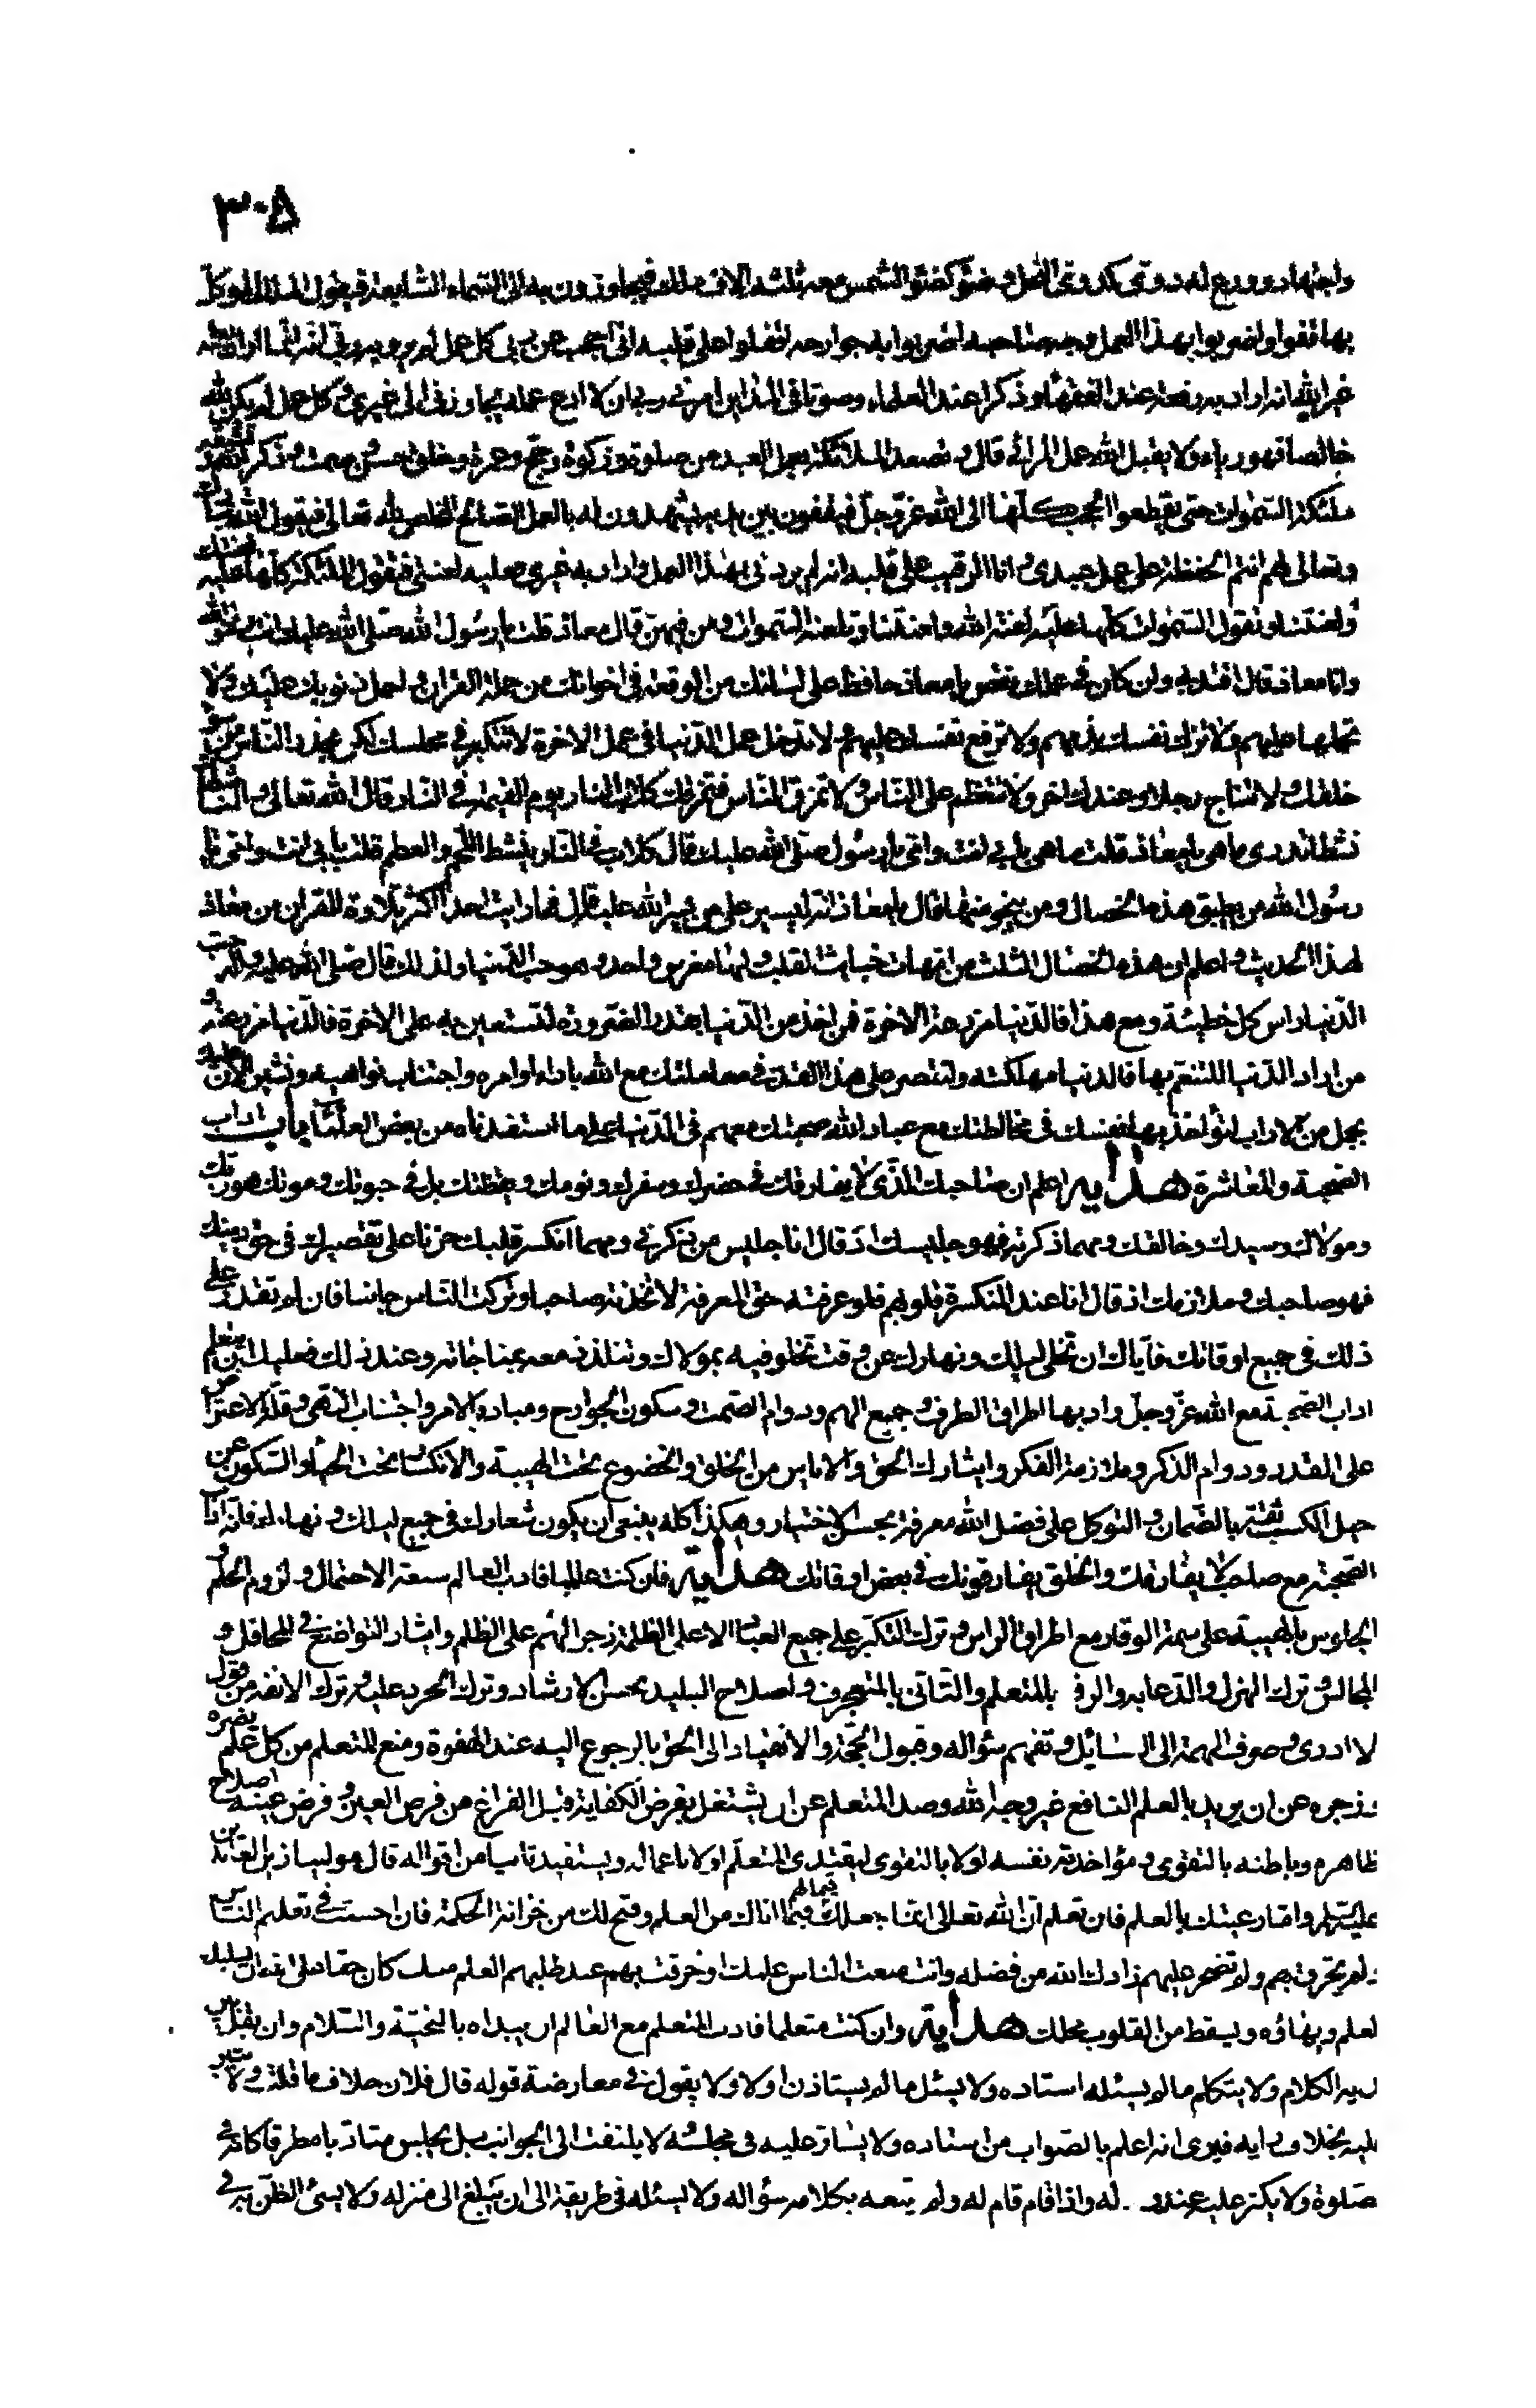 ٣٠۵
واجتهاد وورع له دوى كدوى النحل وضوء كضوء الشمس معه ثلثة الاف ملك فيجاوزون به الى السماء السابعة فيقول الملك الموكل
بها قفوا واضربوا بهذا العمل وجه صاحبه اضربوا به جوارحه اقفلوا على قلبه انى احجب عن ربى كل عمل لم يرد به ربى انه انما اراد بعمله
غير الله انه اراد به رفعة عند الفقهاء وذكرا عند العلماء وصوتا فى المداين امرنى ربى ان لا ادع عمله يجاوزنى الى غيرى وكل عمل لم يكن لله
خالصا فهو رياء ولا يقبل الله عمل المرائى قال وتصعد الملائكة بعمل العبد من صلوة وزكوة وحج وعمرة وخلق حسن وصمت وذكر
ملئكة السموات حتى يقطعوا الحجب كلها الى الله عز وجل فيقفون بين يديه يشهدون له بالعمل الصالح المخلص لله تعالى فيقول الله
وتعالى لهم انتم الحفظة على عمل عبدى وانا الرقيب على قلبه انه لم يردنى بهذا العمل واراد به غيرى فعليه لعنتى فتقول الملئكة كلها عليه لعنتك
ولعنتنا وتقول السموات كلها عليه لعنة الله ولعنتنا وتلعنه السموات ومن فيهن قال معاذ قلت يا رسول الله صلى الله عليك انت رسول الله
وانا معاذ قال اقتد بى وان كان فى عملك نقص يا معاذ حافظ على لسانك من الوقيعة فى اخوانك من حملة القران واحمل ذنوبك عليك ولا
تحملها عليهم ولا تزك نفسك بذمهم ولا ترفع نفسك عليهم ولا تدخل عمل الدنيا فى عمل الاخرة لا تتكبر فى مجلسك لكى يحذر الناس من سوء
خلقك ولا تناج رجلا وعندك اخر ولا تتعظم على الناس ولا تمزق الناس فتمزقك كلاب النار يوم القيمة فى النار قال الله تعالى والناشطات
نشطا تدرى ما هى يا معاذ قلت ما هى بابى انت وامى يا رسول صلى الله عليك قال كلاب فى النار ينشط اللحم والعظم قلت بابى انت وامى يا
رسول الله من يطيق هذه الخصال ومن ينجو منها قال يا معاذ انه ليسير على من يسره الله عليه قال فما رايت احدا اكثر تلاوة للقران من معاذ
لهذا الحديث واعلم ان هذه الخصال الثلث من امهات خبايث القلب ولها مغرس واحد وهو حب الدنيا ولذلك قال صلى الله عليه واله حب
الدنيا راس كل خطيئة ومع هذا فالدنيا مزرعة الاخرة فمن اخذ من الدنيا بقدر الضرورة ليستعين به على الاخرة فالدنيا مزرعته و
من اراد الدنيا للتنعم بها فالدنيا مهلكته ولتقتصر على هذا القدر فى معاملتك مع الله باداء اوامره واجتناب نواهيه ونشير الان عليك
بجمل من الاداب لتؤاخذ بها نفسك فى مخالطتك مع عباد الله وصحبتك معهم فى الدنيا على ما استفدناه من بعض العلماء باب اداب
الصحبة والمعاشرة هداية اعلم ان صاحبك الذى لا يفارقك فى حضرك وسفرك ونومك ويقظتك بل فى حيوتك وموتك هو ربك
ومولاك وسيدك وخالقك ومهما ذكرته فهو جليسك اذ قال انا جليس من ذكرنى ومهما انكسر قلبك حزنا على تقصيرك فى حق دينك
فهو صاحبك وملازمك اذ قال انا عند المنكسرة قلوبهم فلو عرفته حق المعرفة لاتخذته صاحبا وتركت الناس جانبا فان لم تقدر على
ذلك فى جميع اوقاتك فاياك ان تخلى ليلك ونهارك عن وقت تخلو فيه بمولاك وتتلذذ معه بمناجاته وعند ذلك فعليك ان تتعلم
اداب الصحبة مع الله عز وجل وادبها اطراق الطرف وجميع الهم ودوام الصمت وسكون الجوارح ومبادرة الامر واجتناب النهى وقلة الاعتراض
على القدر ودوام الذكر وملازمة الفكر وايثارك الحق والاياس من الخلق والخضوع تحت الهيبة والانكسار تحت الحياء والسكون عن
حيل الكسب ثقة بالضمان والتوكل على فضل الله معرفة بحسن الاختيار وهكذا كله ينبغى ان يكون شعارك فى جميع ليلك ونهارك فانه اداب
الصحبة مع صاحب لا يفارقك والخلق يفارقونك فى بعض اوقاتك هداية فان كنت عالما فاداب العالم سعة الاحتمال ولزوم الحلم و
الجلوس بالهيبة على سمة الوقار مع اطراق الراس وترك التكبر على جميع العباد الا على الظلمة زجرا لهم على الظلم وايثار التواضع فى المحافل و
المجالس وترك الهزل والدعابة والرفق بالمتعلم والتانى بالمتعجرف واصلاح البليد بحسن الارشاد وترك الحرد عليه وترك الانفة من قول
لا ادرى وصرف الهمة الى السائل وتفهم سؤاله وقبول الحجة والانقياد الى الحق بالرجوع اليه عند الهفوة ومنع المتعلم من كل علم يضره
وزجره عن ان يريد بالعلم النافع غير وجه الله وصد المتعلم عن ان يشتغل بفرض الكفاية قبل الفراغ من فرض العين وفرض عينه اصلاح
ظاهره وباطنه بالتقوى ومؤاخذته نفسه اولا بالتقوى ليقتدى المتعلم اولا باعماله ويستفيد ثانيا من اقواله قال مولينا زين العابدين
عليه السلام واما رعيتك بالعلم فان تعلم ان الله تعالى انما جعلك قيما لهم فيما اتاك من العلم وفتح لك من خزانة الحكمة فان احسنت فى تعليم الناس
ولم تخرق بهم ولم تضجر عليهم زادك الله من فضله وانت منعت الناس علمك او خرقت بهم عند طلبهم العلم منك كان حقا على الله ان يسلبك
لعلم وبهاؤه ويسقط من القلوب محلك هداية وان كنت متعلما فادب المتعلم مع العالم ان يبداه بالتحية والسلام وان يقلل بين
يديه الكلام ولا يتكلم ما لم يسئله استاده ولا يسئل ما لم يستاذن اولا ولا يقول فى معارضة قوله قال فلان خلاف ما قلته ولا يشير
عليه بخلاف رايه فيرى انه اعلم بالصواب من استاده ولا يشاور عليه فى مجلسه لا يلتفت الى الجوانب بل يجلس متادبا مطرقا كانه فى
صلوة ولا يكثر عليه عند له واذا قام قام له ولم يتبعه بكلامه وسؤاله ولا يسئله فى طريقه الى ان يبلغ الى منزله ولا يسئ الظن به فى